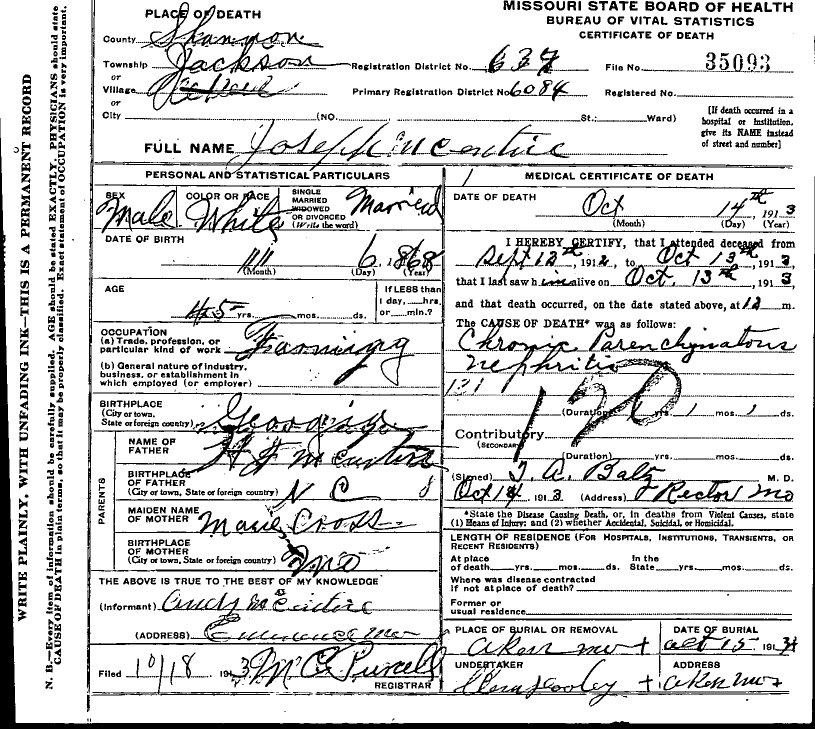 WRITE PLAINLY, WITH UNFADING INK—THIS IS A PERMANENT RECORD
N. B.—Every item of information should be carefully supplied. AGE should be stated EXACTLY. PHYSICIANS should state
CAUSE OF DEATH in plain terms, so that it may be properly classified. Exact statement of OCCUPATION is very important.
MISSOURI STATE BOARD OF HEALTH
BUREAU OF VITAL STATISTICS
CERTIFICATE OF DEATH
PLACE OF DEATH
County Shannon
Township Jackson
or
Village
or
City (NO. St.; Ward)
Registration District No. 637 File No. 35093
Primary Registration District No. 6084 Registered No.
[If death occurred in a
hospital or institution,
give its NAME instead
of street and number]
FULL NAME Joseph McEntire
PERSONAL AND STATISTICAL PARTICULARS
SEX Male
COLOR OR RACE White
SINGLE
MARRIED
WIDOWED
OR DIVORCED
(Write the word)
Married
DATE OF BIRTH
11 6 1868
(Month) (Day) (Year)
AGE
45 yrs. mos. ds.
If LESS than
1 day, hrs.
or min.?
OCCUPATION
(a) Trade, profession, or
particular kind of work Farming
(b) General nature of industry,
business, or establishment in
which employed (or employer)
BIRTHPLACE
(City or town,
State or foreign country) Georgia
PARENTS
NAME OF
FATHER McEntire
BIRTHPLACE
OF FATHER
(City or town, State or foreign country) N C
MAIDEN NAME
OF MOTHER Marie Cross
BIRTHPLACE
OF MOTHER
(City or town, State or foreign country) Mo
THE ABOVE IS TRUE TO THE BEST OF MY KNOWLEDGE
(Informant) Andy McEntire
(ADDRESS) Eminence Mo
Filed 10/18 1913 M C Purcell
REGISTRAR
MEDICAL CERTIFICATE OF DEATH
DATE OF DEATH
Oct 14th 1913
(Month) (Day) (Year)
I HEREBY CERTIFY, that I attended deceased from
Sept 12th, 1912, to Oct 13th, 1913
that I last saw him alive on Oct. 13th, 1913
and that death occurred, on the date stated above, at 12 m.
The CAUSE OF DEATH* was as follows:
Chronic Parenchymatous
Nephritis
131
120
(Duration) yrs. 1 mos. ds.
Contributory
(SECONDARY)
(Duration) yrs. mos. ds.
(Signed) T. A. Balz M. D.
Oct 14 1913 (Address) Rector Mo
*State the Disease Causing Death, or, in deaths from Violent Causes, state
(1) Means of Injury; and (2) whether Accidental, Suicidal, or Homicidal.
LENGTH OF RESIDENCE (For Hospitals, Institutions, Transients, or
Recent Residents)
At place
of death yrs. mos. ds.
In the
State yrs. mos. ds.
Where was disease contracted
if not at place of death?
Former or
usual residence
PLACE OF BURIAL OR REMOVAL
Aker Mo
DATE OF BURIAL
Oct 15 191
UNDERTAKER
ADDRESS
Aker Mo